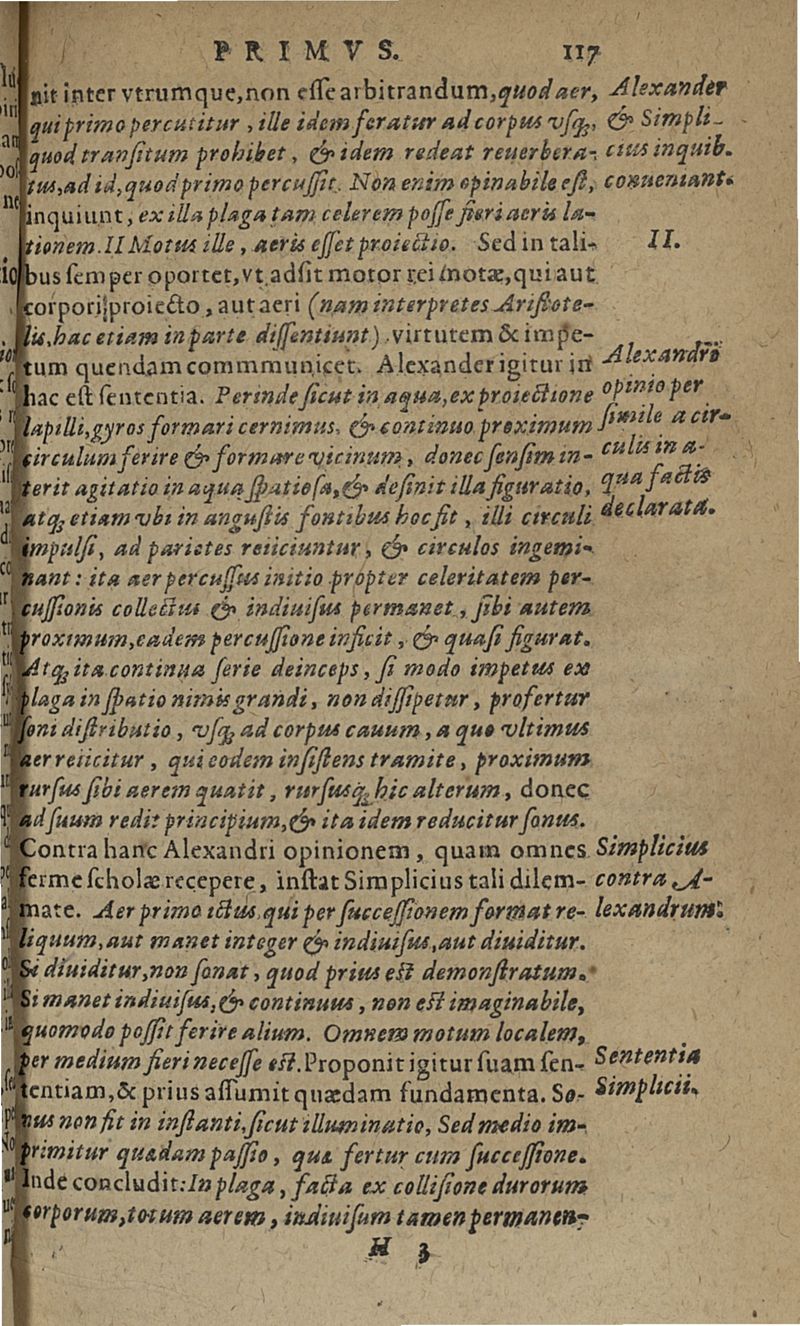 PRIMVS. 117
nit inter vtrumque,non eſſe arbitrandum,quod aer,
qui primo percutitur, ille idem feratur ad corpus vſq;,
quod tranſitum prohibet, & idem redeat reuerbera-
tus,ad id,quod primo percuſſit. Non enim opinabile eſt,
inquiunt, ex illa plaga tam celerem poſſe fieri aeris la-
tionem. II Motus ille, aeris eſſet proiectio. Sed in tali-
bus ſemper oportet,vt adſit motor rei motæ,qui aut
corpori proiecto, aut aeri (nam interpretes Ariſtote-
lis,hac etiam in parte diſſentiunt) virtutem & impe-
tum quendam commmunicet. Alexander igitur in
hac eſt ſententia. Perinde ſicut in aqua,ex proiectione
lapilli,gyros formari cernimus, & continuo proximum
circulum ferire & formare vicinum, donec ſenſim in-
terit agitatio in aqua ſpatioſa,& deſinit illa figuratio,
atq; etiam vbi in anguſtis fontibus hoc fit, illi circuli
impulſi, ad parietes reiiciuntur, & circulos ingemi-
nant: ita aer percuſſus initio propter celeritatem per-
cuſſionis collectus & indiuiſus permanet, ſibi autem
proximum,eadem percuſſione inficit, & quaſi figurat.
Atq; ita continua ſerie deinceps, ſi modo impetus ex
plaga in ſpatio nimis grandi, non diſſipetur, profertur
ſoni diſtributio, vſq; ad corpus cauum, a quo vltimus
aer reiicitur, qui eodem inſiſtens tramite, proximum
rurſus ſibi aerem quatit, rurſusq; hic alterum, donec
ad ſuum redit principium,& ita idem reducitur ſonus.
Contra hanc Alexandri opinionem, quam omnes
ferme ſcholæ recepere, inſtat Simplicius tali dilem-
mate. Aer primo ictus,qui per ſucceſſionem format re-
liquum,aut manet integer & indiuiſus,aut diuiditur.
Si diuiditur,non ſonat, quod prius eſt demonſtratum.
Si manet indiuiſus,& continuus, non eſt imaginabile,
quomodo poſſit ferire alium. Omnem motum localem,
per medium fieri neceſſe eſt. Proponit igitur ſuam ſen-
tentiam,& prius aſſumit quædam fundamenta. So-
nus non fit in inſtanti,ſicut illuminatio, Sed medio im-
primitur quædam paſſio, quæ fertur cum ſucceſſione.
Inde concludit:In plaga, facta ex colliſione durorum
corporum,totum aerem, indiuiſum tamen permanen-
H 3
Alexander
& Simpli-
cius in quib.
conueniant.
II.
Alexandri
opinio per
ſimile a cir-
culis in a-
qua factis
declarata.
Simplicius
contra A-
lexandrum.
Sententia
Simplicii.